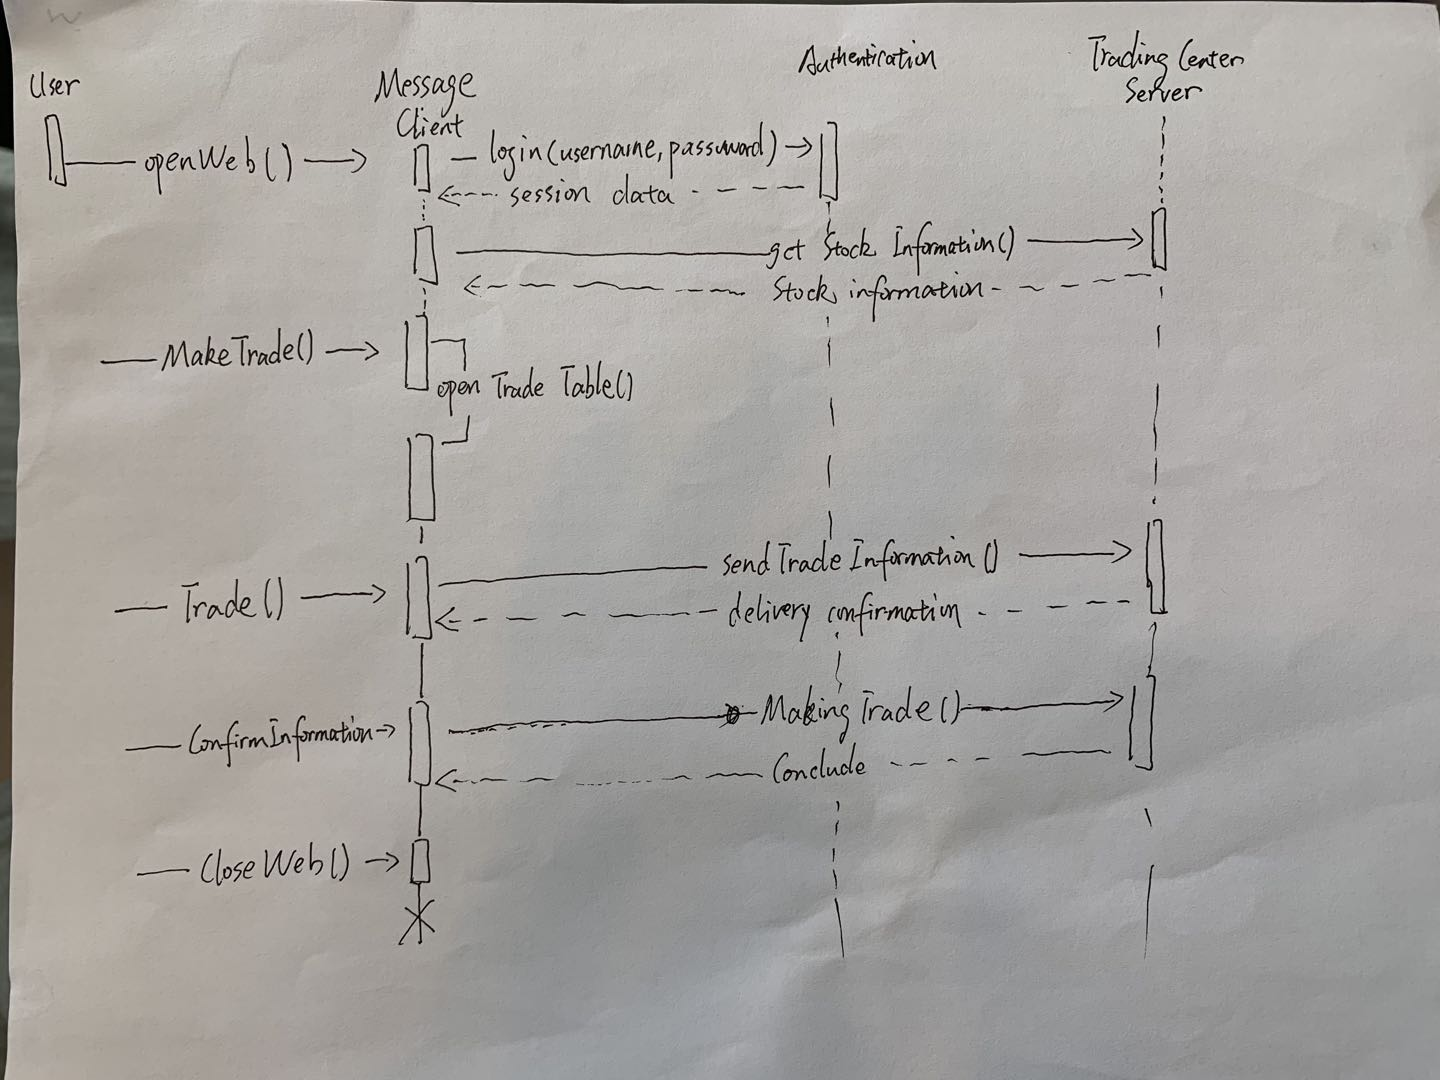 User
Message
Client
Authentication
Trading Center
Server
openWeb()
login(username, password)
session data
get Stock Information()
Stock information
MakeTrade()
open Trade Table()
Trade()
sendTradeInformation()
delivery confirmation
ConfirmInformation
MakingTrade()
Conclude
CloseWeb()